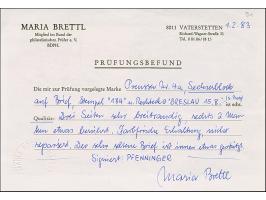 MARIA BRETTL
Mitglied im Bund der
philatelistischen Prüfer e. V.
BDPh.
8011 VATERSTETTEN 1.2.83
Richard-Wagner-Straße
Tel. 0 81 06 /
PRÜFUNGSBEFUND
Die mir zur Prüfung vorgelegte Marke Preussen Nr. 4a, Sechserblock
auf Brief, Stempel "184" u. Rechteck "BRESLAU 15.8. ist echt.
Qualität: Drei Seiten sehr breitrandig, rechts 2 Mar-
ken etwas berührt. Farbfrische Erhaltung, nicht
repariert. Der sehr schöne Brief ist innen etwas gestützt.
Signiert PFENNINGER
Maria Brettl